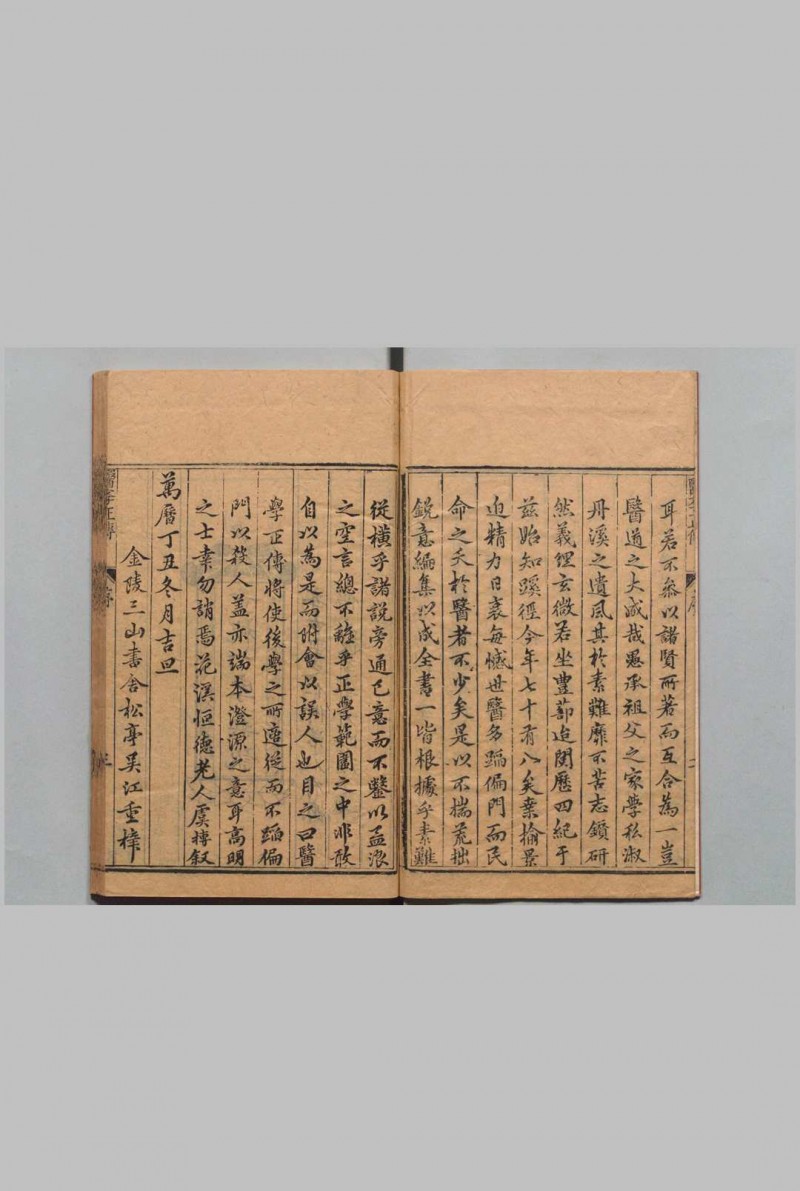 耳若不叅以諸賢所著而互合為一豈
醫道之大成哉愚承祖父之家學私淑
丹溪之遺風其於素難靡不苦志鑽研
然義理玄微若坐豐蔀迨閱歷四紀于
兹始知蹊徑今年七十有八矣桒榆景
迫精力日衰每憾世醫多蹈偏門而民
命之夭於醫者不少矣是以不揣荒拙
銳意編集以成全書一皆根據乎素難
從橫乎諸說旁通己意而不鑿以孟浪
之空言總不離乎正學範圍之中非敢
自以為是而附會以誤人也目之曰醫
學正傳將使後學之所適從而不蹈偏
門以殺人盖亦端本澄源之意耳高明
之士幸勿誚焉花溪恒德老人虞摶叙
萬曆丁丑冬月吉旦
金陵三山書舍松亭吴江重梓
醫學正傳
序